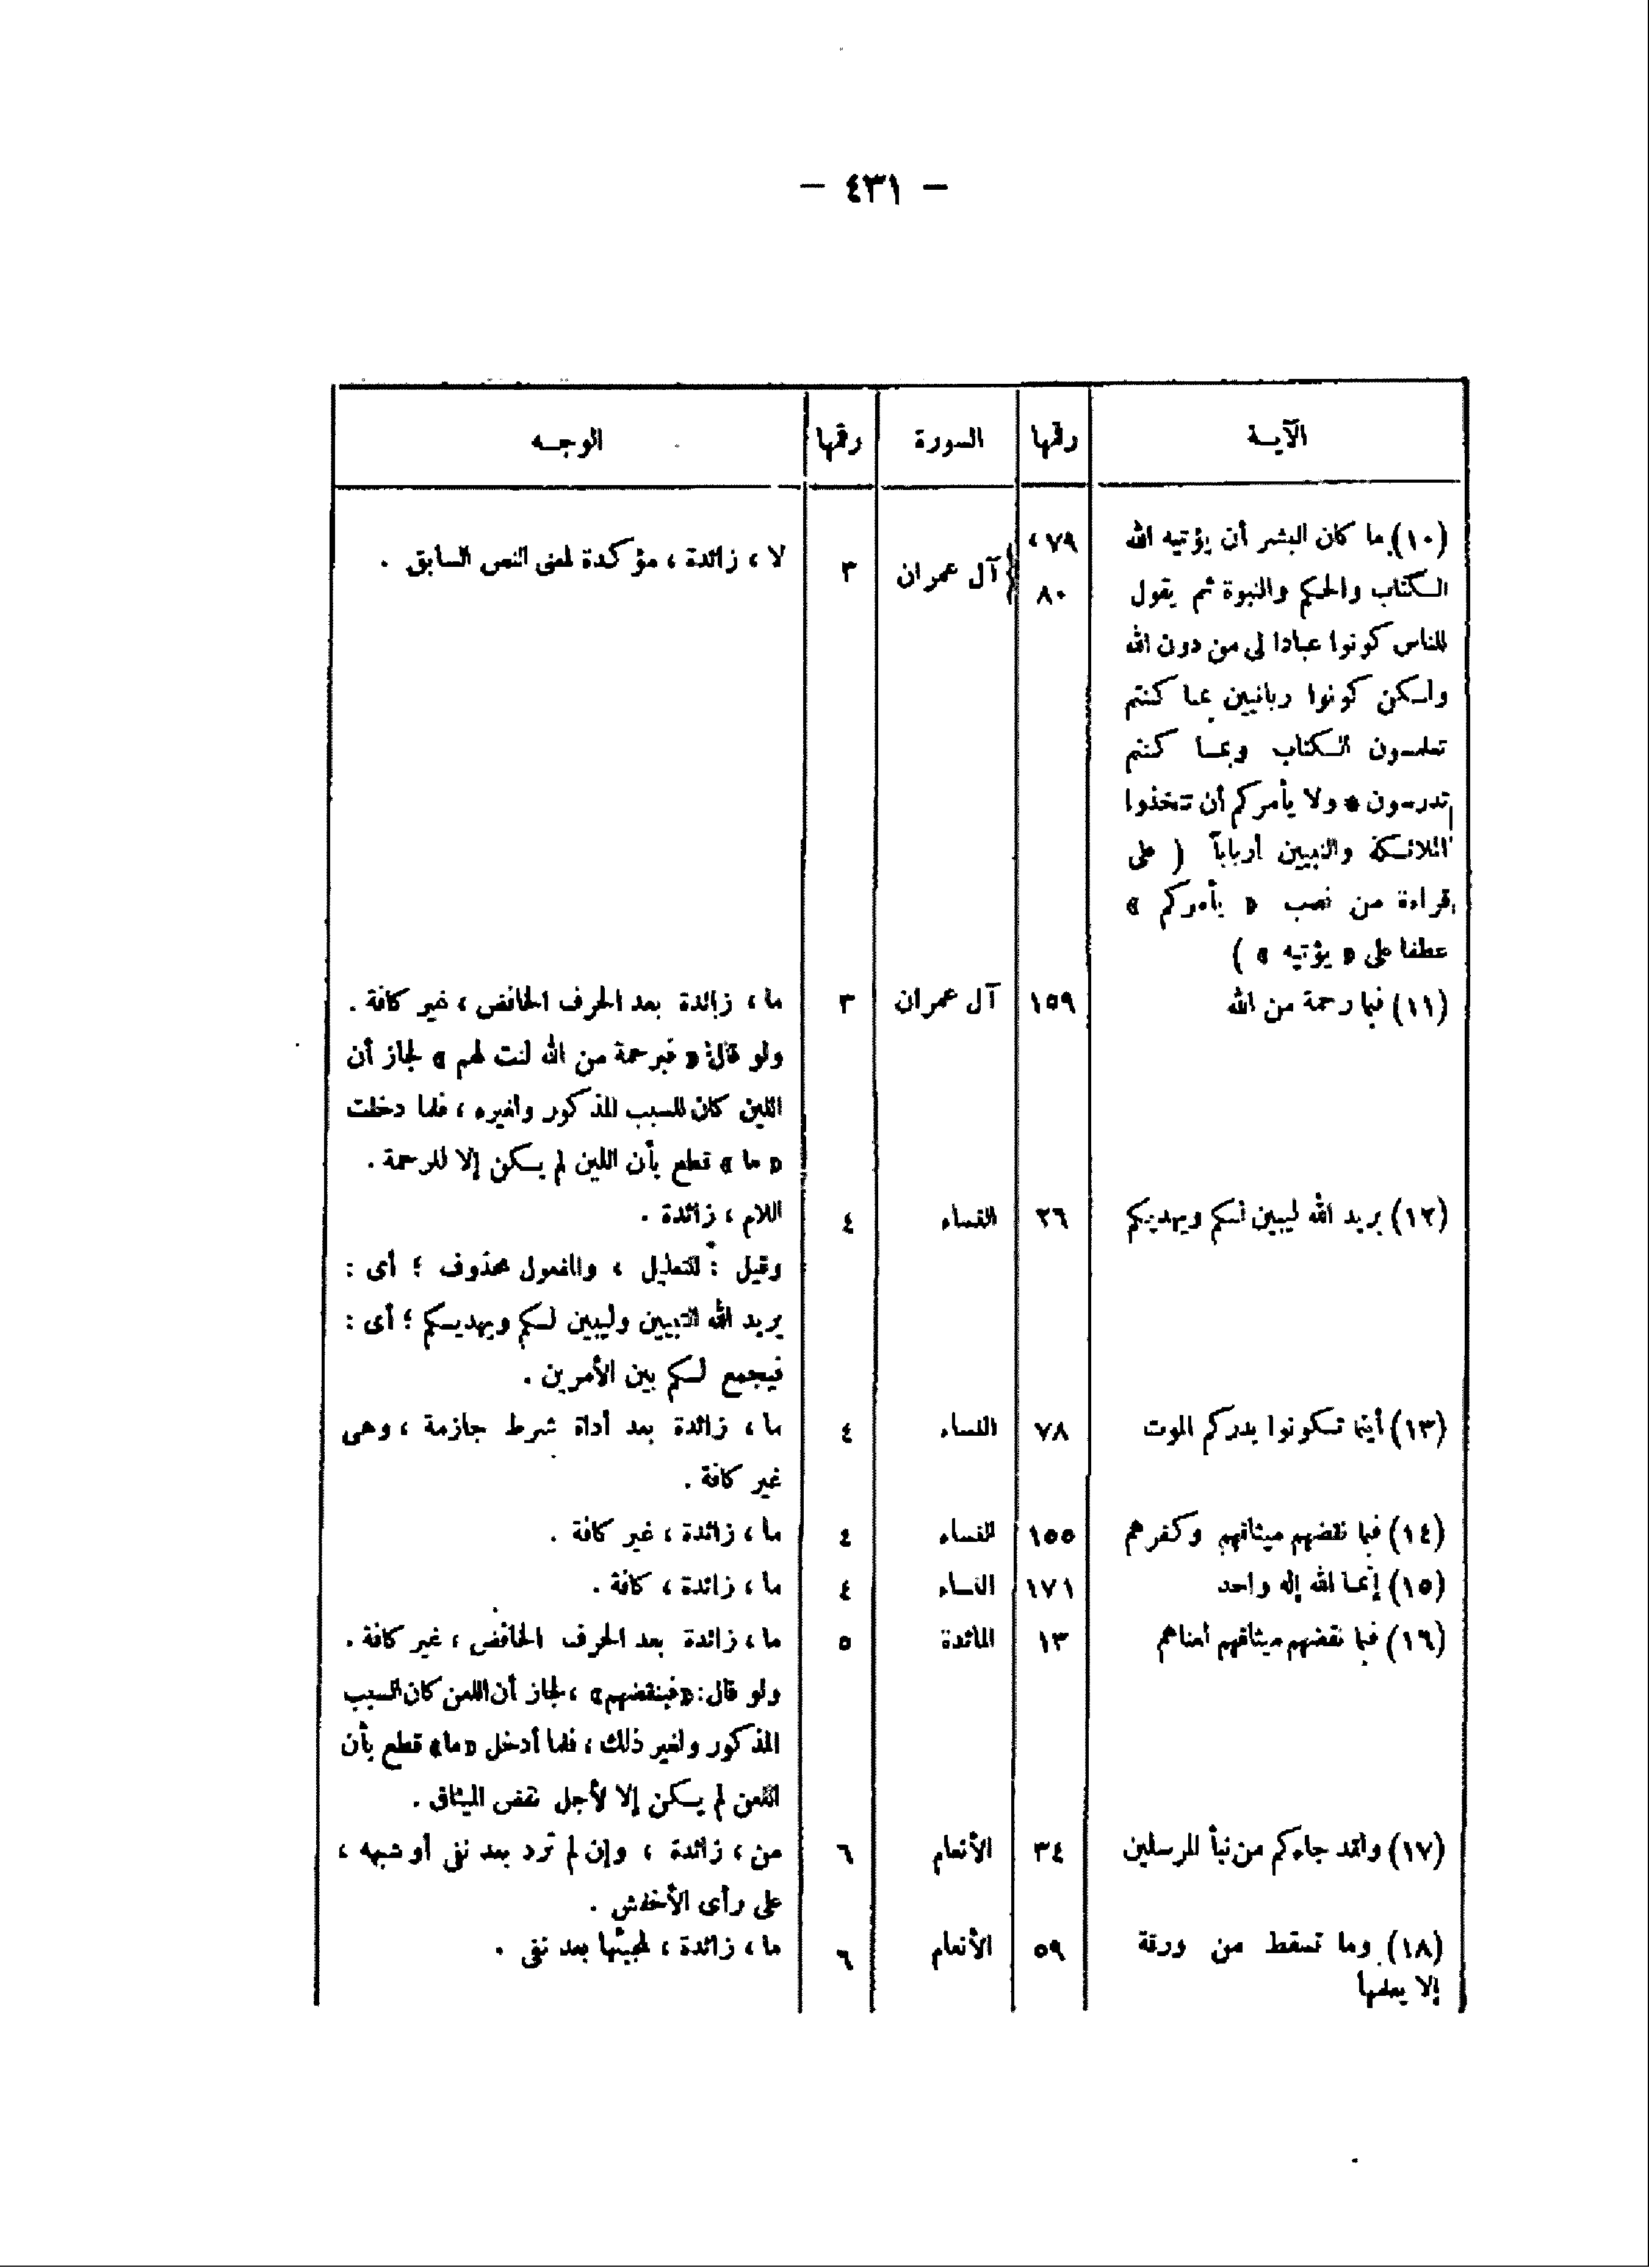 — ٤٣١ —
الآيــة رقمها السورة رقمها الوجــه
(١٠) ما كان البشر أن يؤتيه الله ٧٩ ،
الكتاب والحكم والنبوة ثم يقول ٨٠ آل عمران ٣ لا ، زائدة ، مؤكدة لمعنى النص السابق .
للناس كونوا عبادا لى من دون الله
ولكن كونوا ربانيين بما كنتم
تعلمون الكتاب وبما كنتم
تدرسون * ولا يأمركم أن تتخذوا
الملائكة والنبيين أرباباً ( على
قراءة من نصب « يأمركم »
عطفا على « يؤتيه » )
(١١) فبما رحمة من الله ١٥٩ آل عمران ٣ ما ، زائدة بعد الحرف الخافض ، غير كافة .
ولو قال: « فبرحمة من الله لنت لهم » لجاز أن
اللين كان للسبب المذكور ولغيره ، فلما دخلت
« ما » قطع بأن اللين لم يكن إلا للرحمة .
(١٢) يريد الله ليبين لكم ويهديكم ٢٦ النساء ٤ اللام ، زائدة .
وقيل : للتعليل ، والمفعول محذوف ؛ أى :
يريد الله التبيين وليبين لكم ويهديكم ؛ أى :
فيجمع لكم بين الأمرين .
(١٣) أينما تكونوا يدركم الموت ٧٨ النساء ٤ ما ، زائدة بعد أداة شرط جازمة ، وهى
غير كافة .
(١٤) فبما نقضهم ميثاقهم وكفرهم ١٥٥ النساء ٤ ما ، زائدة ، غير كافة .
(١٥) إنما الله إله واحد ١٧١ النساء ٤ ما ، زائدة ، كافة .
(١٦) فبما نقضهم ميثاقهم لعناهم ١٣ المائدة ٥ ما ، زائدة بعد الحرف الخافض ، غير كافة .
ولو قال: «فبنقضهم» ، لجاز أن اللعن كان للسبب
المذكور ولغير ذلك ، فلما أدخل «ما» قطع بأن
اللعن لم يكن إلا لأجل نقض الميثاق .
(١٧) ولقد جاءكم من نبأ المرسلين ٣٤ الأنعام ٦ من ، زائدة ، وإن لم ترد بعد نفى أو شبهه ،
على رأى الأخفش .
(١٨) وما تسقط من ورقة ٥٩ الأنعام ٦ ما ، زائدة ، لمجيئها بعد نفى .
إلا يعلمها